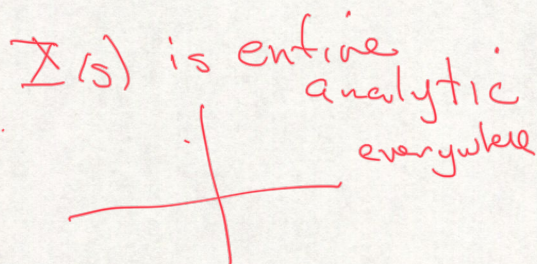 X(s) is entire
analytic
everywhere